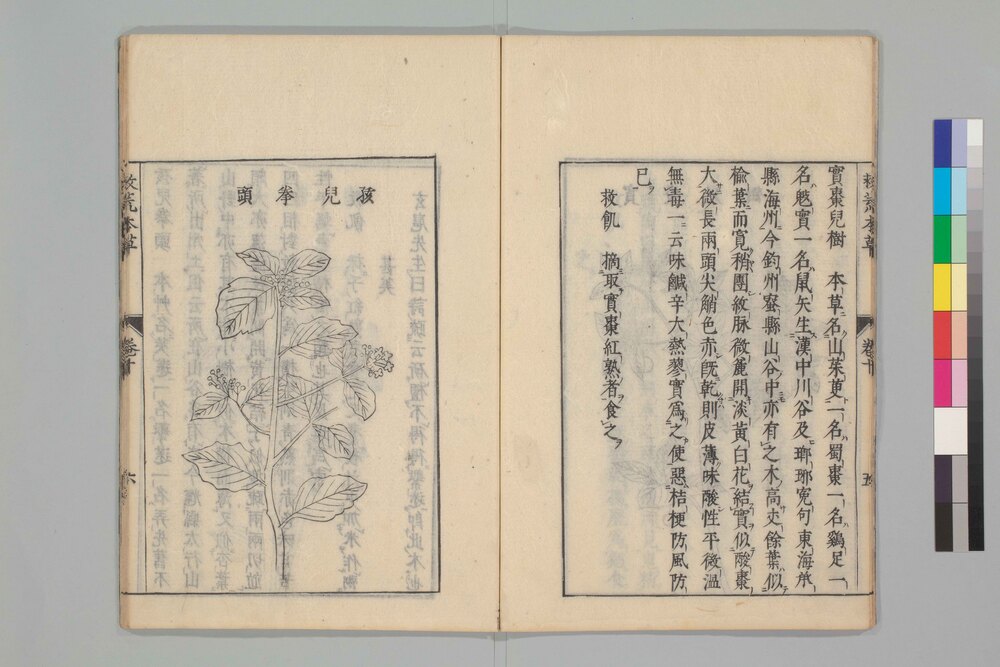 實棗兒樹　本草名山茱萸一名蜀棗一名鷄足一
名鬾實一名鼠矢生漢中川谷及瑯琊寃句東海承
縣海州今鈞州宻縣山谷中亦有之木高丈餘葉似
榆葉而寛稍團紋脉微麄開淡黃白花結實似酸棗
大微長兩頭尖䚡色赤既乾則皮薄味酸性平微溫
無毒一云味鹹辛大熱蓼實爲之使惡桔梗防風防
已
救飢　摘取實棗紅熟者食之
救荒本草
卷十
五
孩兒拳頭
救荒本草
卷十
六